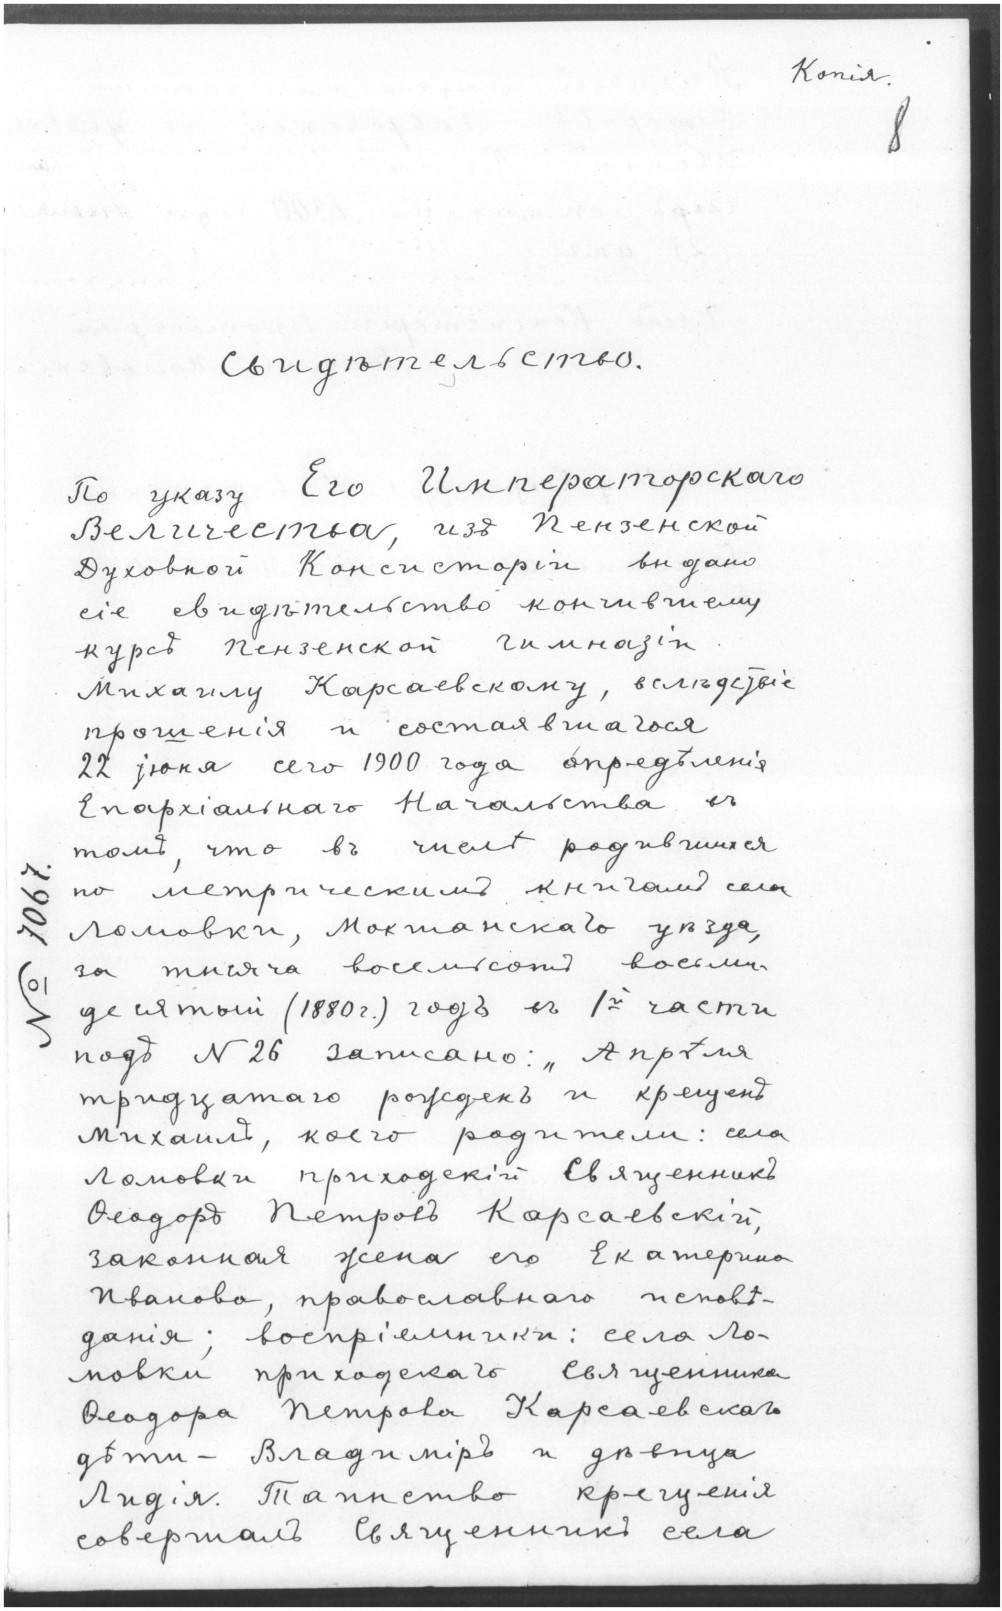 Копія.
8
Свидѣтельство.
По указу Его Императорскаго
Величества, изъ Пензенской
Духовной Консисторіи выдано
сіе свидѣтельство кончившему
курсъ Пензенской гимназіи
Михаилу Карсаевскому, вслѣдствіе
прошенія и состоявшагося
22 іюня сего 1900 года опредѣленія
Епархіальнаго Начальства въ
томъ, что въ числѣ родившихся
по метрическимъ книгамъ села
Ломовки, Мокшанскаго уѣзда,
за тысяча восемьсотъ восемь-
десятый (1880 г.) годъ въ 1й части
подъ N 26 записано: „Апрѣля
тридцатаго рожденъ и крещенъ
Михаилъ, коего родители: села
Ломовки приходскій Священникъ
Ѳеодоръ Петровъ Карсаевскій,
законная жена его Екатерина
Иванова, православнаго исповѣ-
данія; воспріемники: села Ло-
мовки приходскаго Священника
Ѳеодора Петрова Карсаевскаго
дѣти – Владиміръ и дѣвица
Лидія. Таинство крещенія
совершалъ Священникъ села
№ 7067.